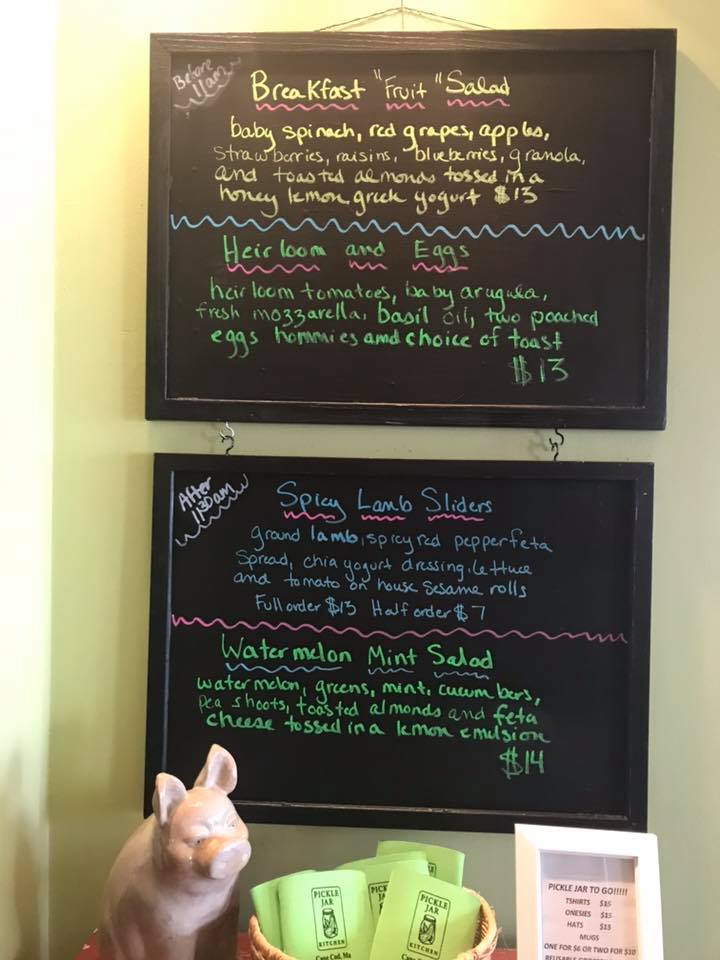 Before
11am
Breakfast "Fruit" Salad
baby spinach, red grapes, apples,
strawberries, raisins, blueberries, granola,
and toasted almonds tossed in a
honey lemon greek yogurt $13
Heirloom and Eggs
heirloom tomatoes, baby arugula,
fresh mozzarella, basil oil, two poached
eggs hommies and choice of toast
$13
After
1130am
Spicy Lamb Sliders
ground lamb, spicy red pepper feta
spread, chia yogurt dressing, lettuce
and tomato on house sesame rolls
Full order $13 Half order $7
Watermelon Mint Salad
watermelon, greens, mint, cucumbers,
pea shoots, toasted almonds and feta
cheese tossed in a lemon emulsion
$14
PICKLE
JAR
KITCHEN
Cape Cod, Ma
PICKLE
JAR
KITCHEN
PICKLE JAR TO GO!!!!!
TSHIRTS $15
ONESIES $15
HATS $15
MUGS
ONE FOR $6 OR TWO FOR $10